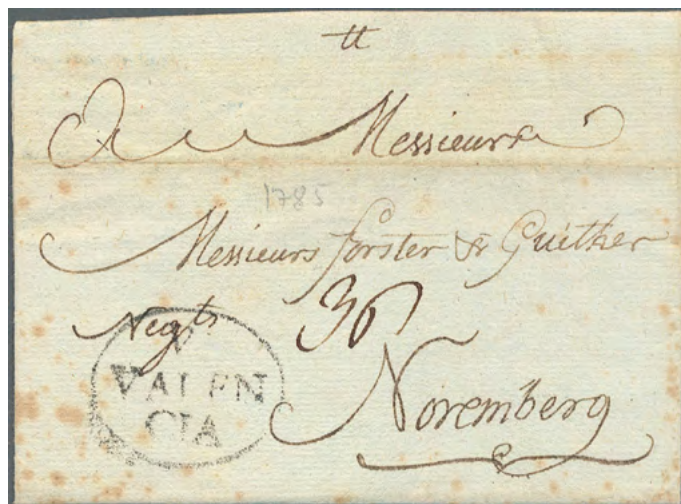 tt
A Messieurs
1785
Messieurs forster & Guither
Negts 36
V
VALEN
CIA
Noremberg